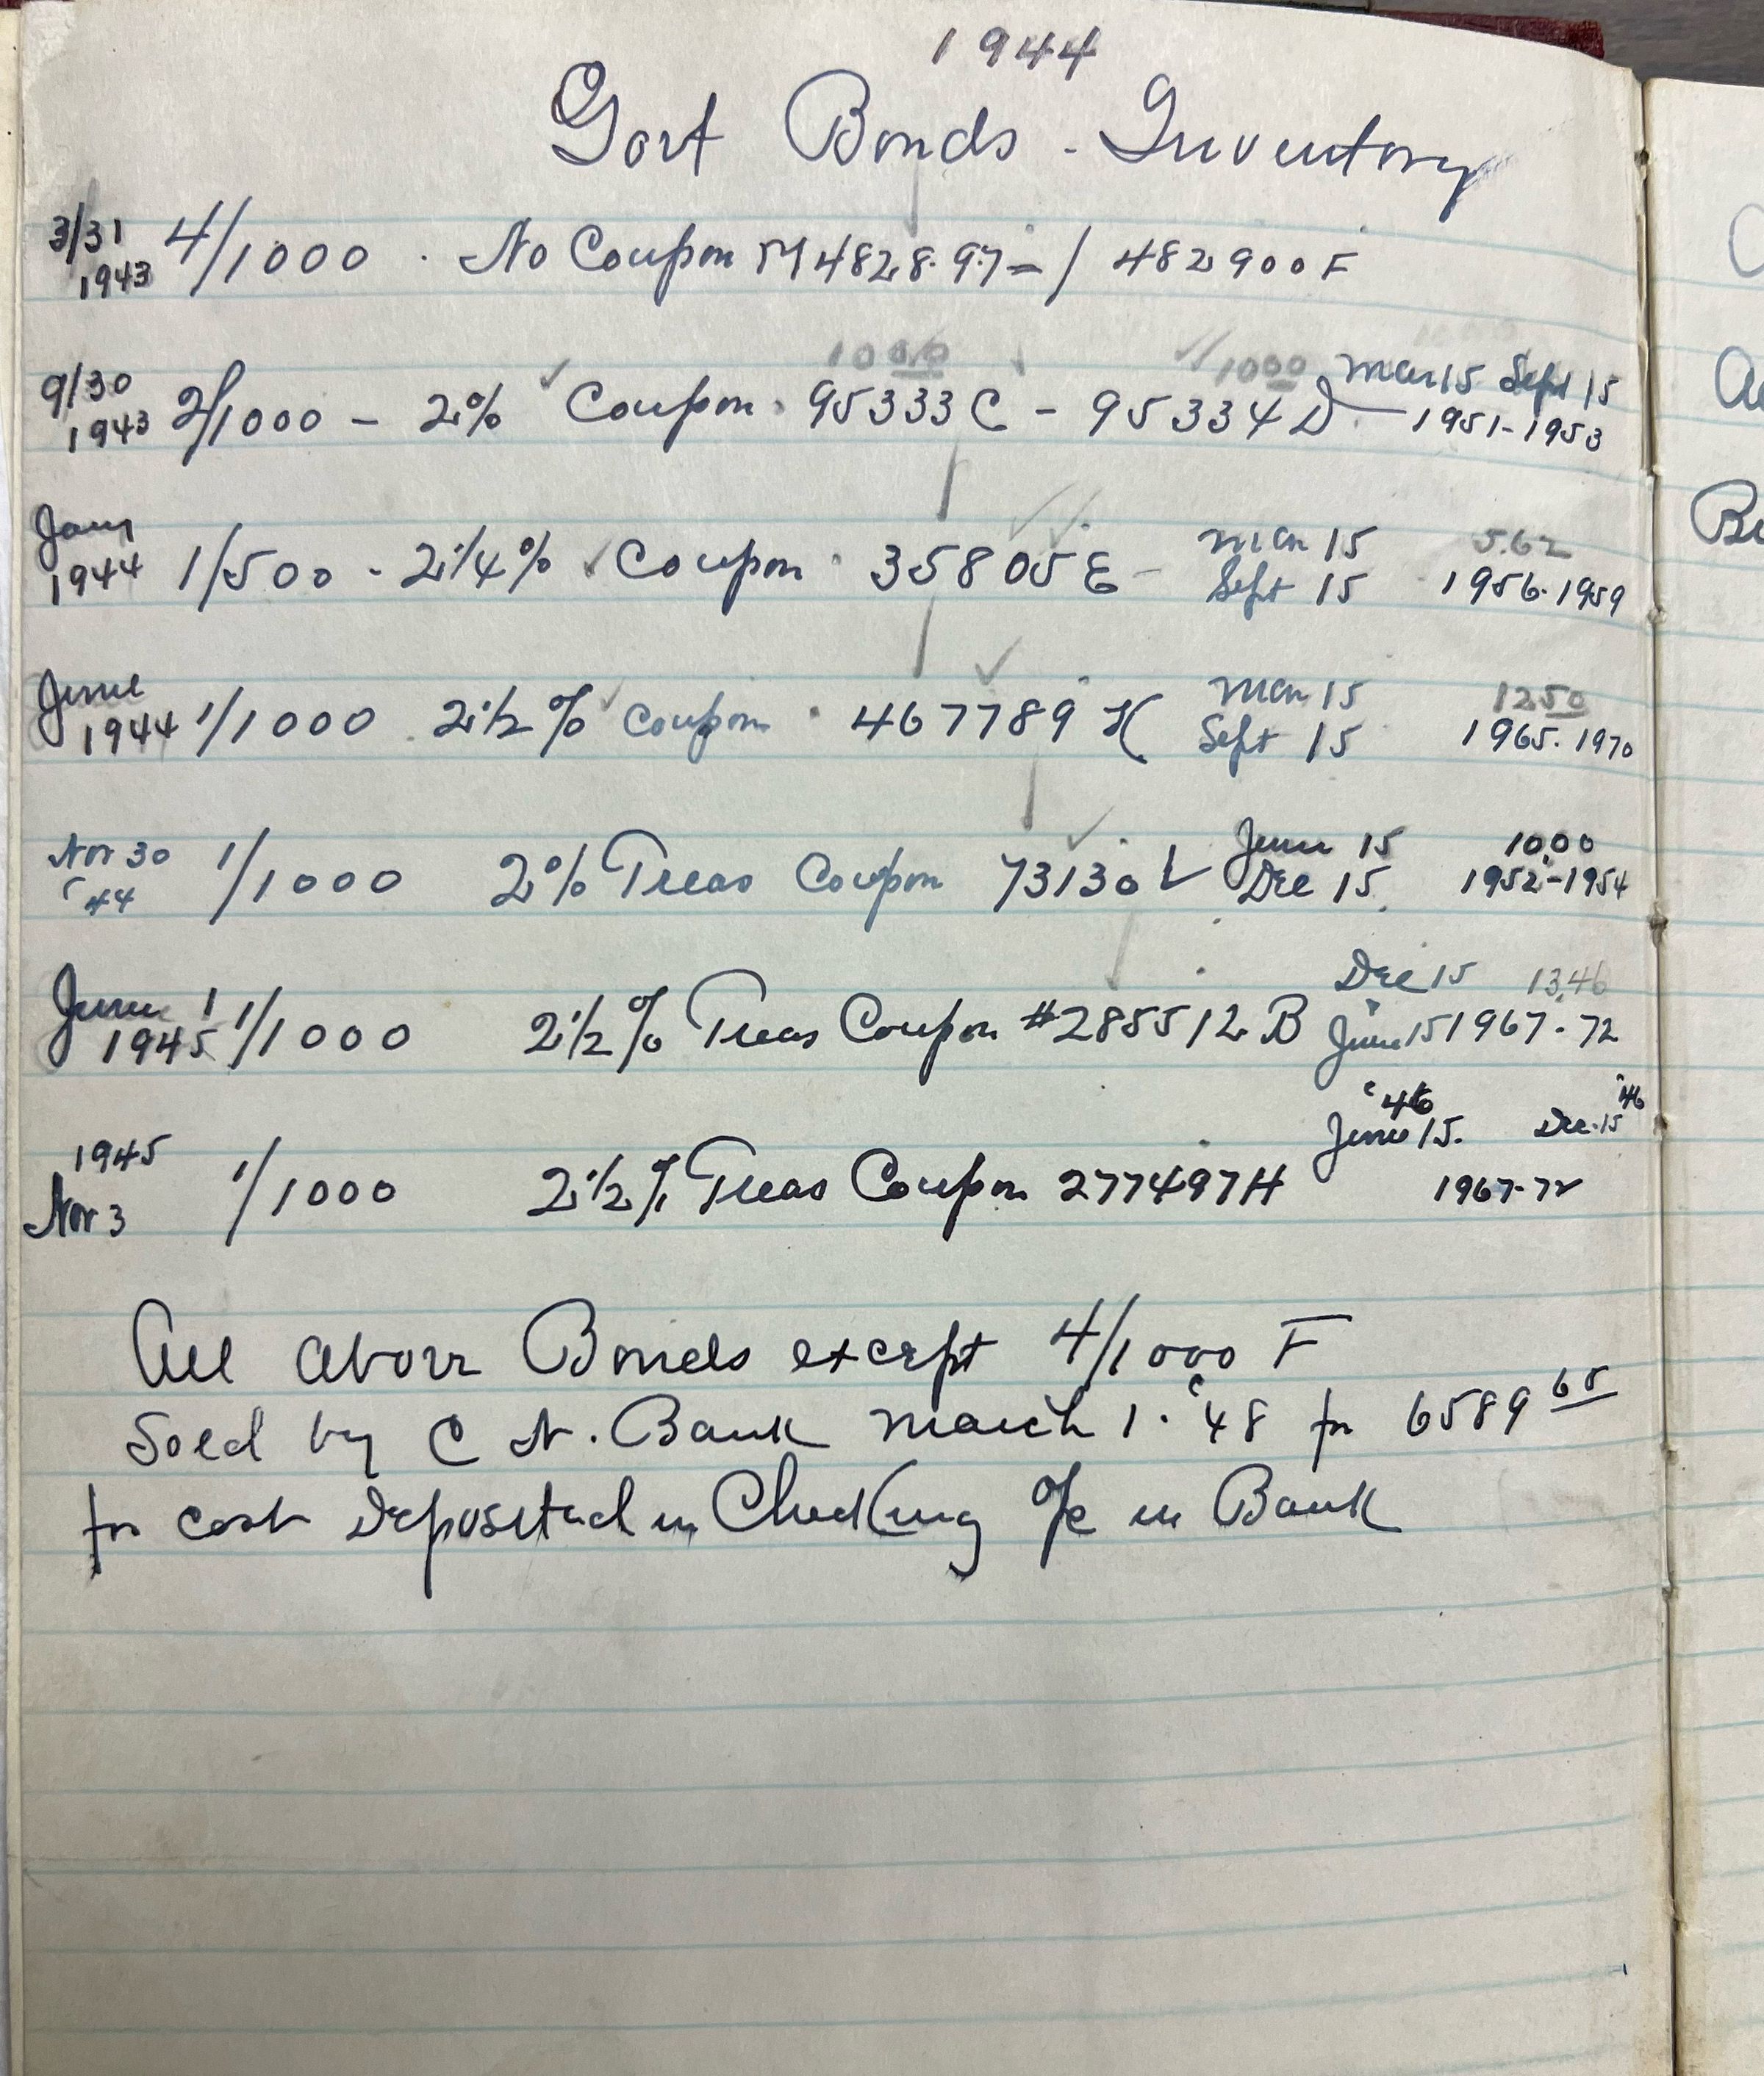 1944
Govt Bonds - Inventory
3/31 1943 4/1000 · No Coupon M 482897 = / 482900 F
1000 1000 Mar 15 Sept 15
9/30 1943 2/1000 - 2% Coupon · 95333C - 95334D - 1951-1953
Jany Mar 15 5.62
1944 1/500 - 2 1/4% Coupon · 35805E - Sept 15 1956-1959
June Mar 15 12.50
1944 1/1000 2 1/2% Coupon · 467789 K Sept 15 1965-1970
Nov 30 June 15 10.00
'44 1/1000 2% Treas Coupon 73130 L Dec 15 1952-1954
June 1 Dec 15 13.46
1945 1/1000 2 1/2% Treas Coupon #285512 B June 15 1967-72
'46 '46
1945 June 15. Dec. 15
Nov 3 1/1000 2 1/2% Treas Coupon 277497H 1967-72
All above Bonds except 4/1000 F
Sold by C N. Bank March 1 · '48 for 6589 65
for cost Deposited in Checking a/c in Bank